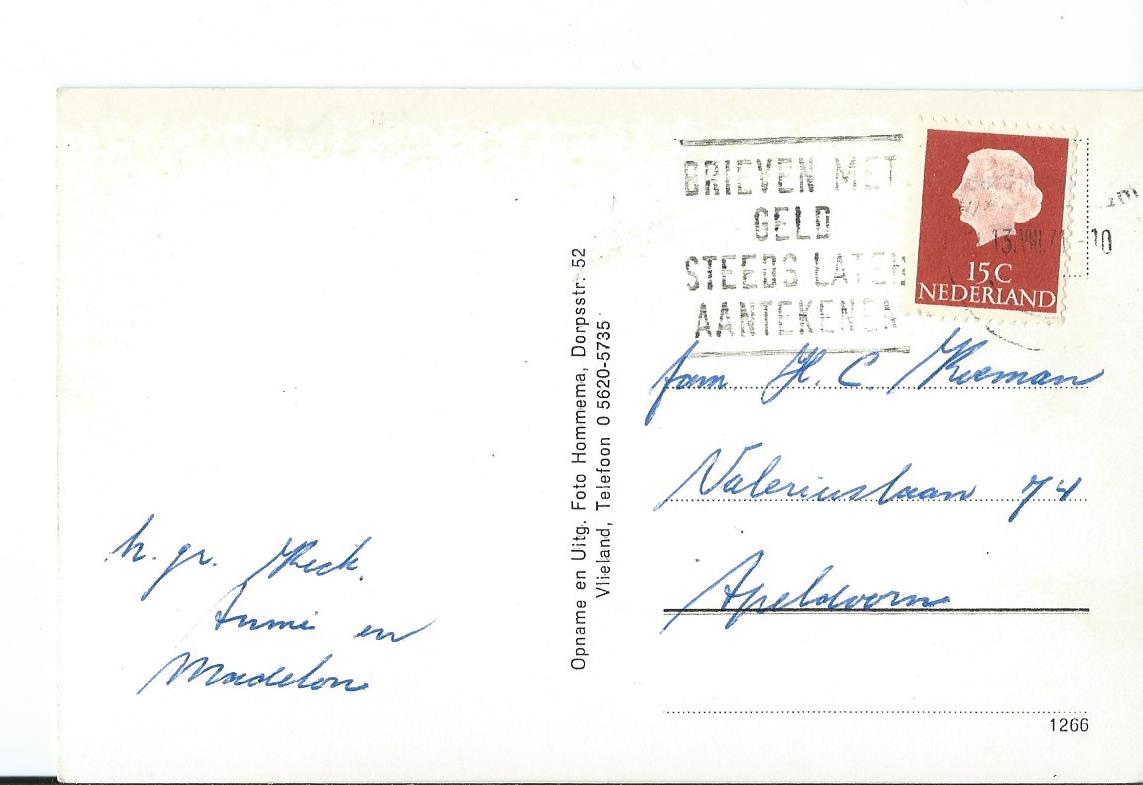 BRIEVEN MET
GELD
STEEDS LATEN
AANTEKENEN
13.VIII.71-10
15 C
NEDERLAND
fam H. C. Koeman
Valeriuslaan 74
Apeldoorn
h. gr.
Annie en
Madelon
Opname en Uitg. Foto Hommema, Dorpsstr. 52
Vlieland, Telefoon 0 5620-5735
1266